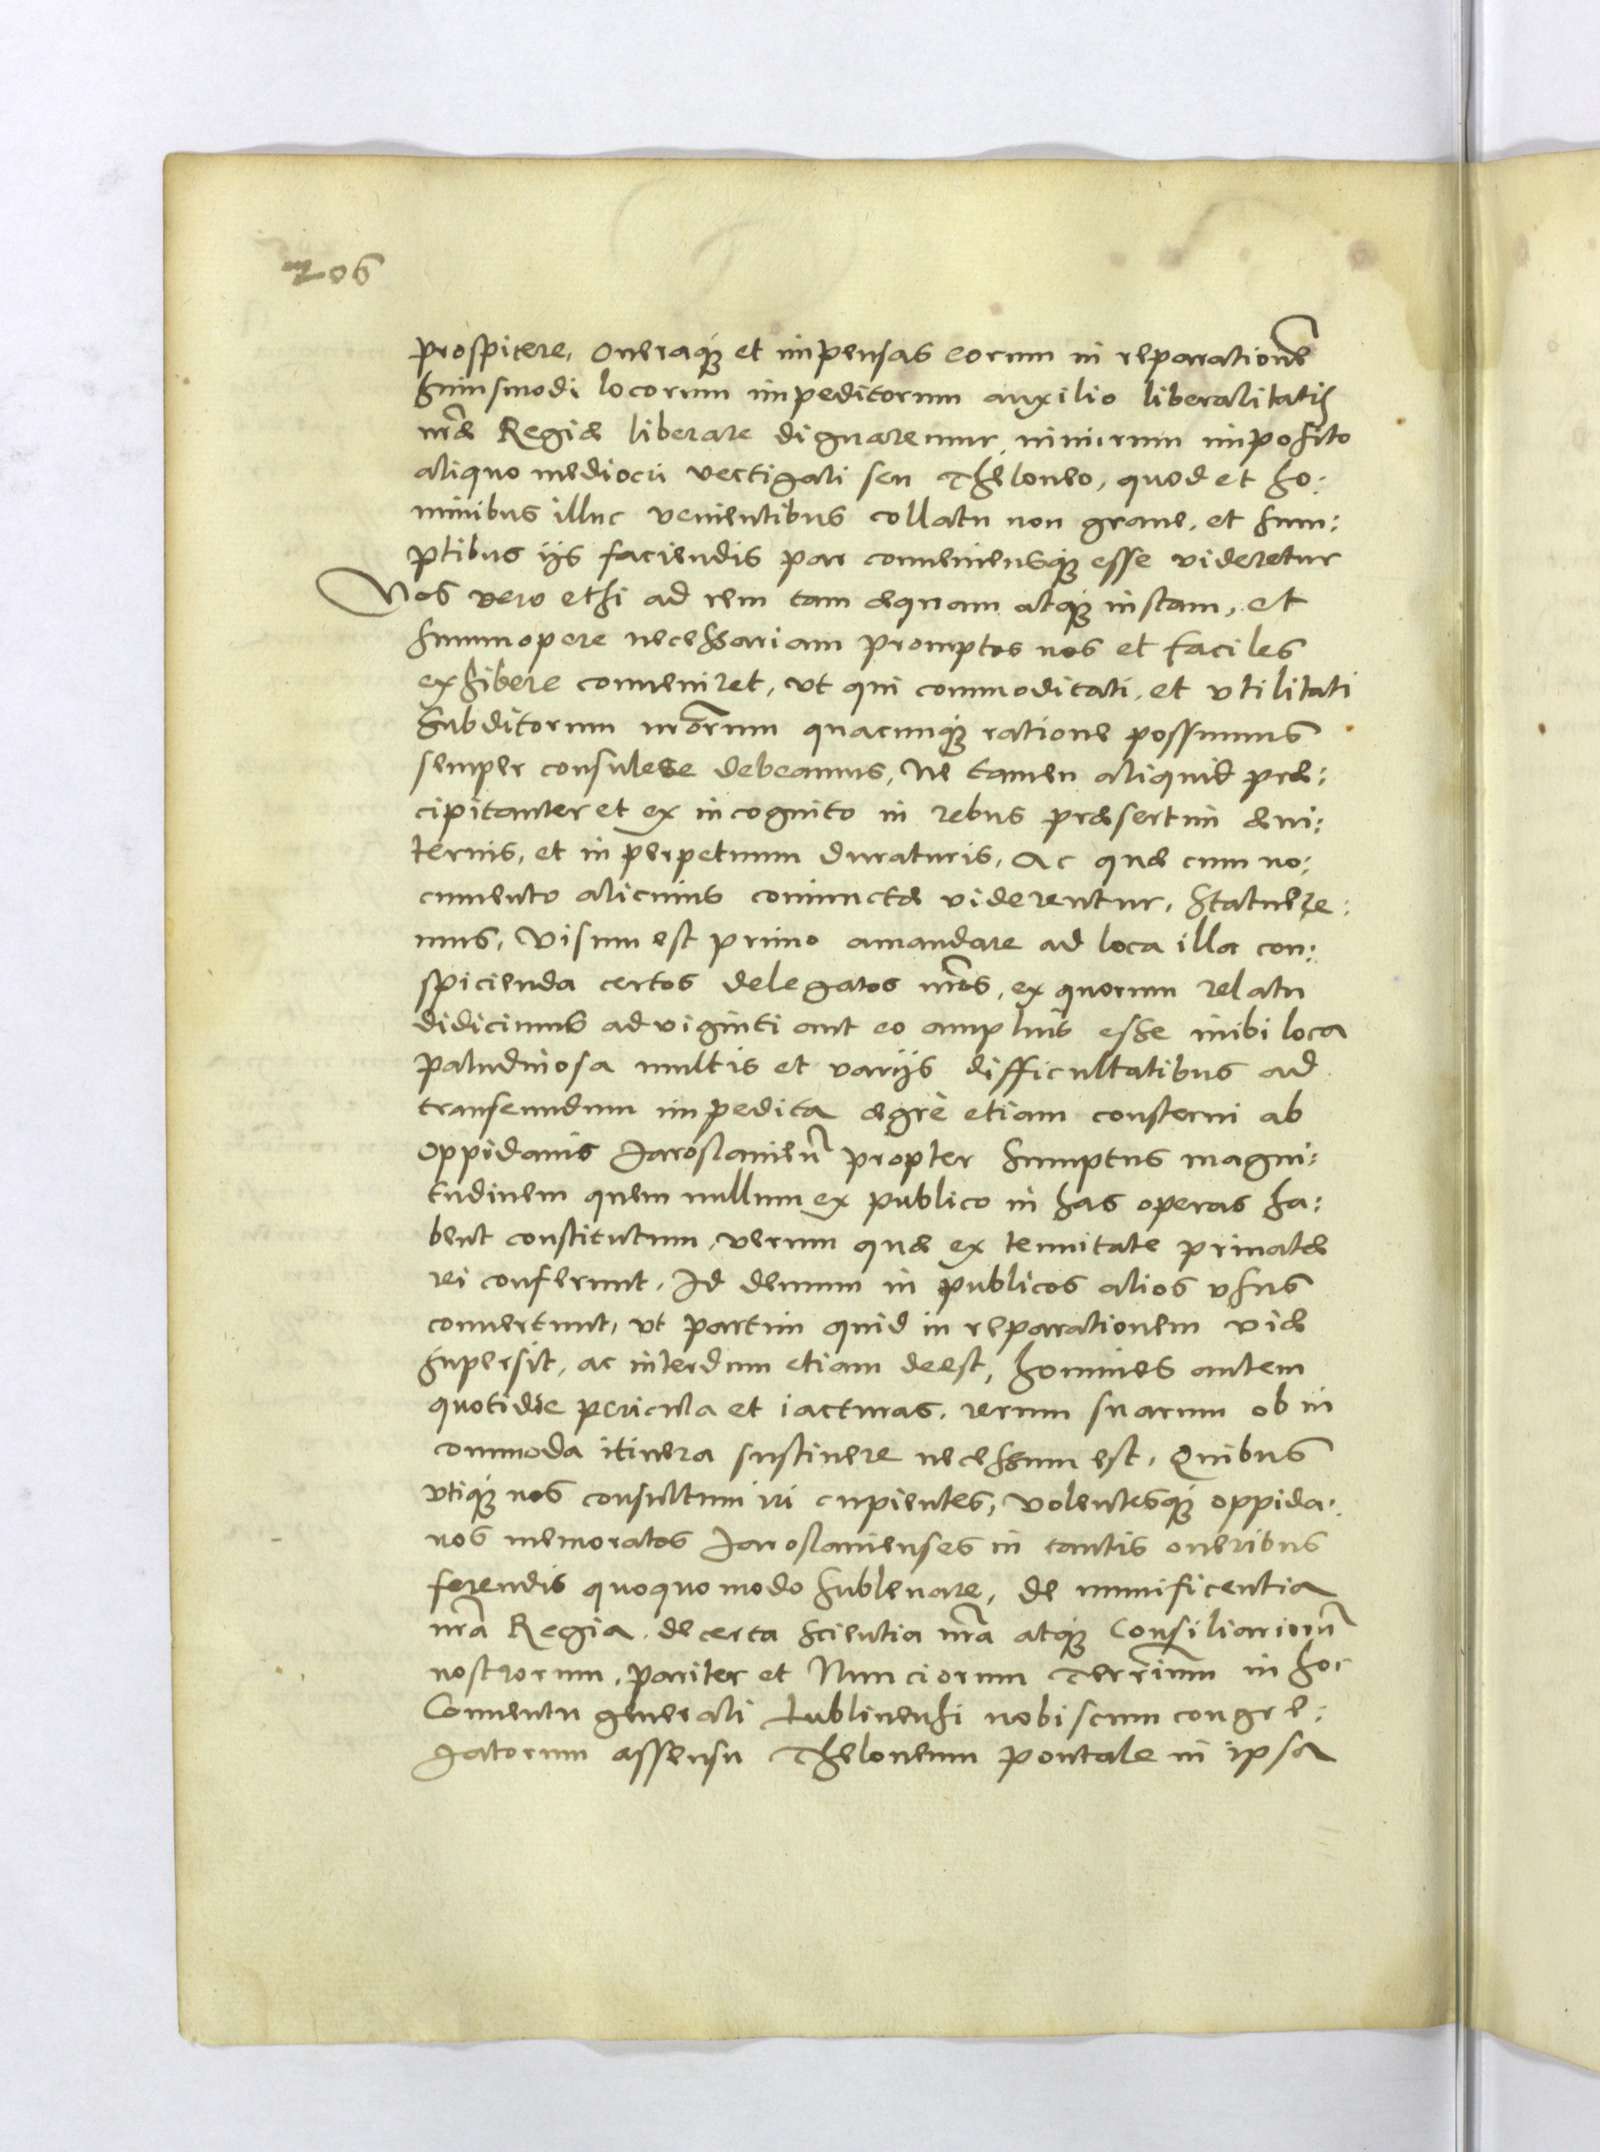 206
prospicere, oneraq́ue et impensas eorum in reparationẽ
huiusmodi locorum impeditorum auxilio liberalitatis
nr̃æ Regiæ liberare dignaremur, nimirum imposito
aliquo mediocri vectigali seu Theloneo, quod et ho:
minibus illuc venientibus collatu non graue, et sum:
ptibus ijs faciendis par conueniensq́ue esse videretur
Nos vero etsi ad rem tam æquam atq́ue iustam, et
summopere necessariam promptos nos et faciles
exhibere conueniret, vt qui commoditati, et vtilitati
subditorum nr̃orum quacunq́ue ratione possumus
semper consulere debeamus, Ne tamen aliquid præ:
cipitanter et ex incognito in rebus præsertim æui:
ternis, et in perpetuum duraturis, Ac quæ cum no:
cumento alicuius coniuncta viderentur, statuere:
mus, Visum est primo amandare ad loca illa con:
spicienda certos delegatos nr̃os, ex quorum relatu
didicimus ad viginti aut eo amplius esse inibi loca
paludinosa multis et varijs difficultatibus ad
transeundum impedita ægrè etiam consterni ab
Oppidanis Jaroslauieñ propter sumptus magni:
tudinem quem nullum ex publico in has operas ha:
bent constitutum, verum quæ ex tenuitate priuatæ
rei conferunt, Id demum in publicos alios vsus
conuertunt, vt partim quid in reparationem viæ
supersit, ac interdum etiam deest, homines autem
quotidie pericula et iacturas, rerum suarum ob in
commoda itinera sustinere necessum est, Quibus
vtiq́ue nos consultum iri cupientes, volentesq́ue oppida:
nos memoratos Jaroslauienses in tantis oneribus
ferendis quoquomodo subleuare, de munificentia
nr̃a Regia, de certa scientia nr̃a atq́ue Consiliariorũ
nostrorum, pariter et Nunciorum Terrar̃um in hoc
Conuentu generali Lublinensi nobiscum congre:
gatorum assensu Theloneum pontale in ipsa